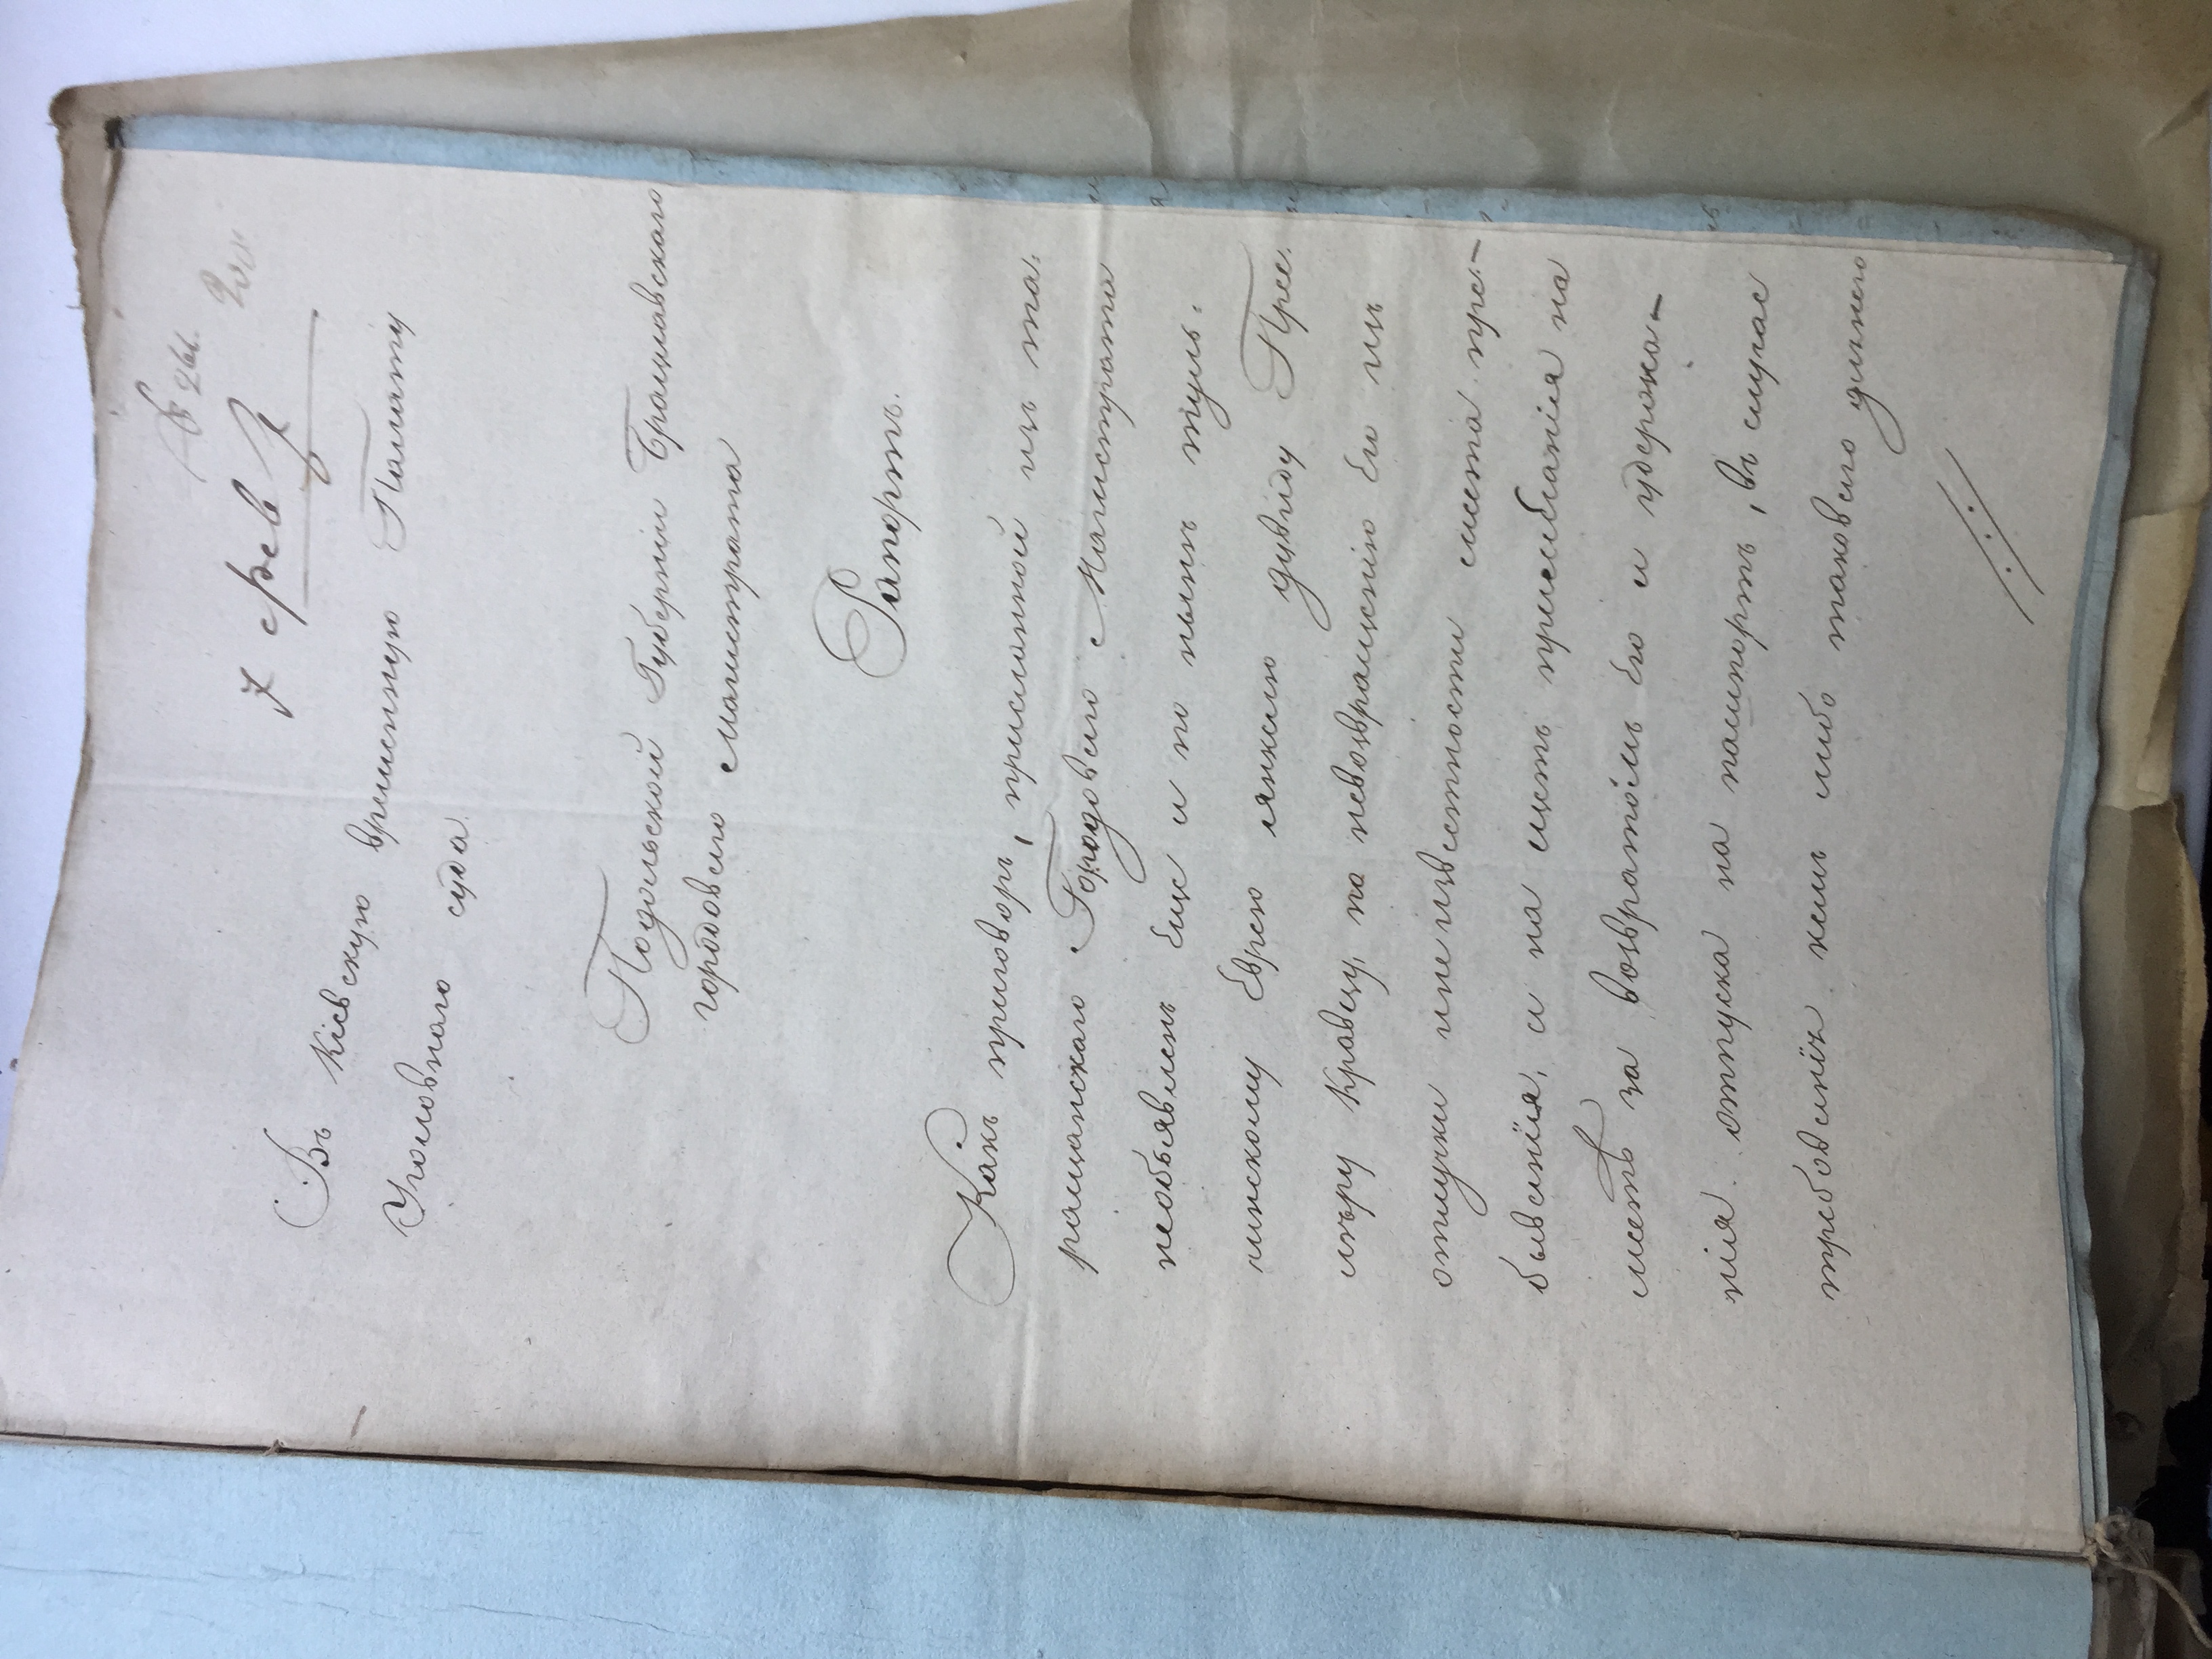 № 261.
7 фев
Въ Кіевскую временную Палату
Уголовнаго суда
Подольской Губерніи Брацлавского
городоваго магистрата
Рапортъ.
Какъ приговоръ, присланной изъ та,
ращанскаго Городоваго Магистрата
необъявленъ Еще и по нынѣ туль,
чинскому Еврею
Кравецу, по невозвращенію Его изъ
отлучки и неизвѣстности мѣста пре-
быванія, и на
за возвратомъ Его и удержа-
нія отпуска на паспортъ, въ случаѣ
требованія кемъ либо таковаго